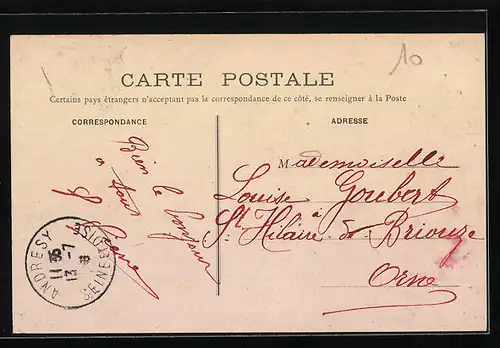 10
CARTE POSTALE
Certains pays étrangers n'acceptant pas la correspondance de ce côté, se renseigner à la Poste
CORRESPONDANCE
ADRESSE
Bien le bonjour
à tous
Mademoiselle
Louise Goubert
à
St Hilaire de Briouze
Orne
ANDRESY
SEINE-ET-OISE
13 -7